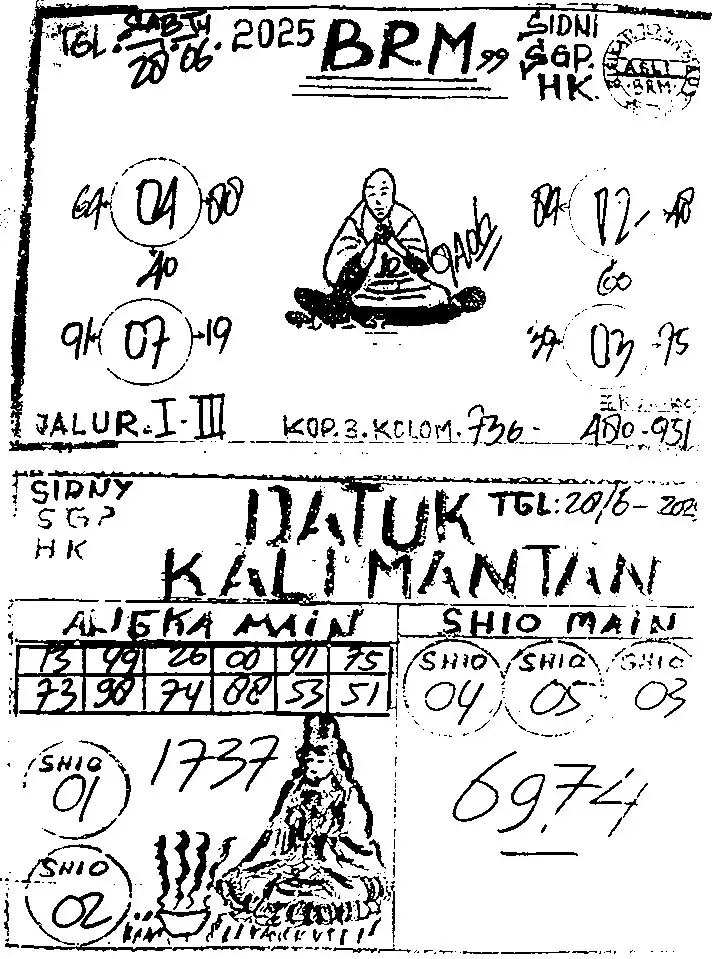 TGL. SABTU 28.06.2025 BRM 99 SIDNI
SGP.
HK.
ASLI
BRM
64 04 00
40
91 07 19
84 12 48
60
39 03 75
JALUR. I-III KOP.3.KOLOM.736- A80-951
SIDNY
SGP
HK
DATUK
KALIMANTAN
TGL:28/6-202
ANGKA MAIN
13 49 26 00 91 75
73 98 74 88 53 51
SHIO MAIN
SHIO SHIO SHIO
04 05 03
SHIO
01
1737
69.74
SHIO
02